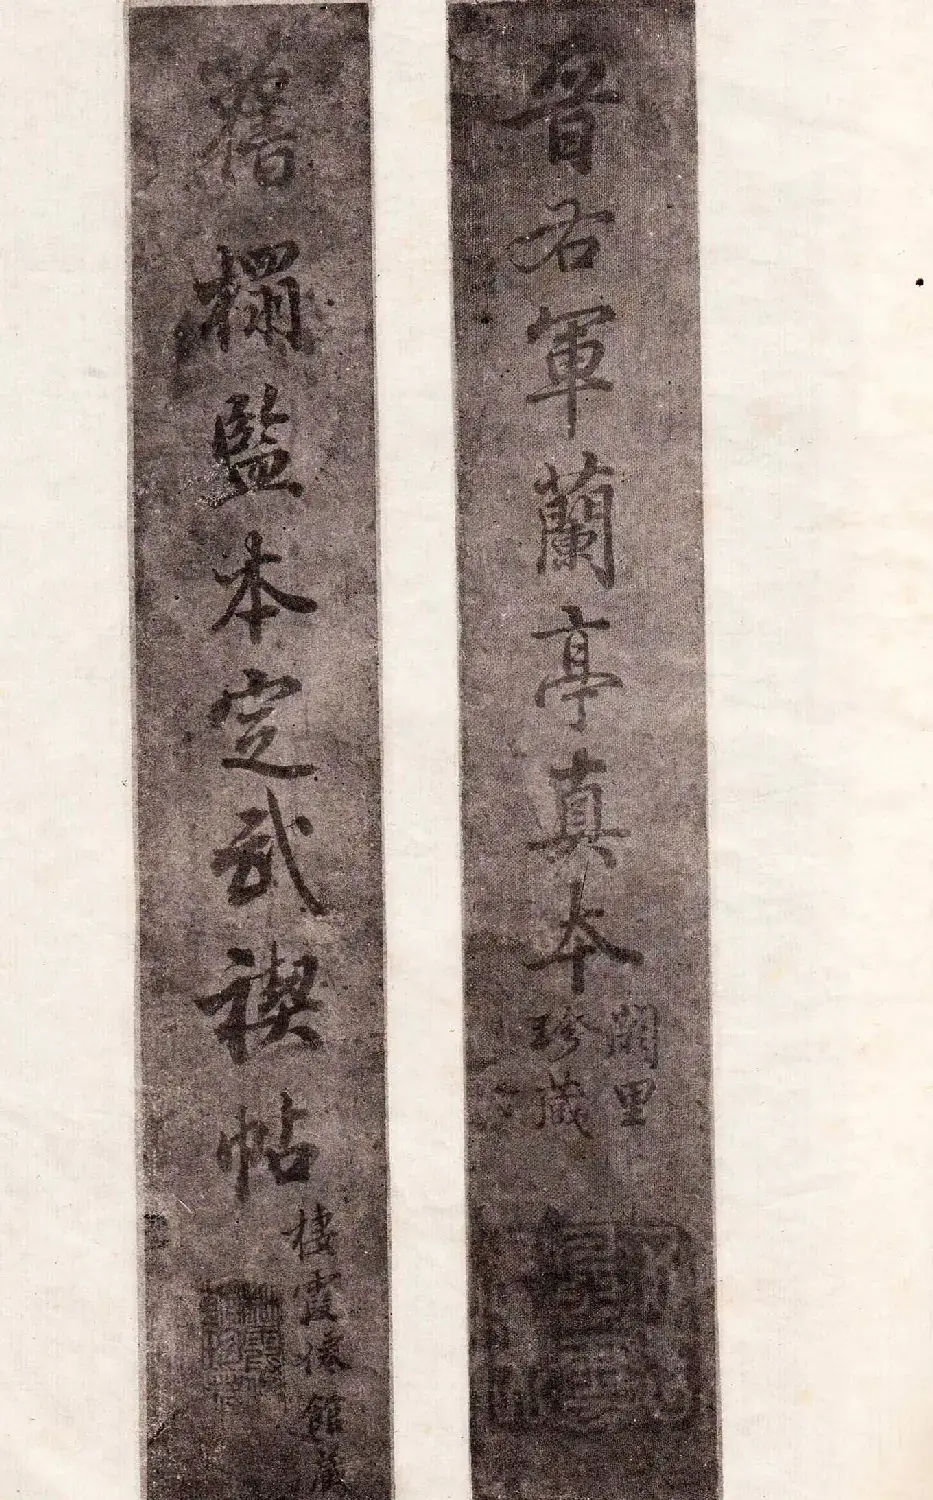 晉右軍蘭亭真本
闕里
珍藏
舊榻監本定武禊帖
棲霞僊館藏